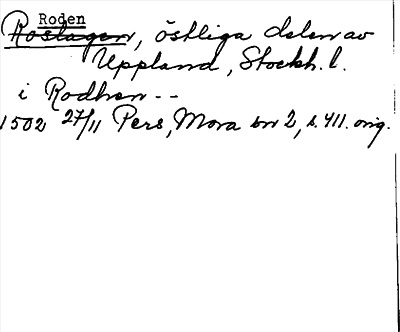 Roden
Roslagen, östliga delen av
Uppland, Stockh. l.
i Rodhen --
1502 27/11 Pers, Mora bn 2, s. 411. orig.